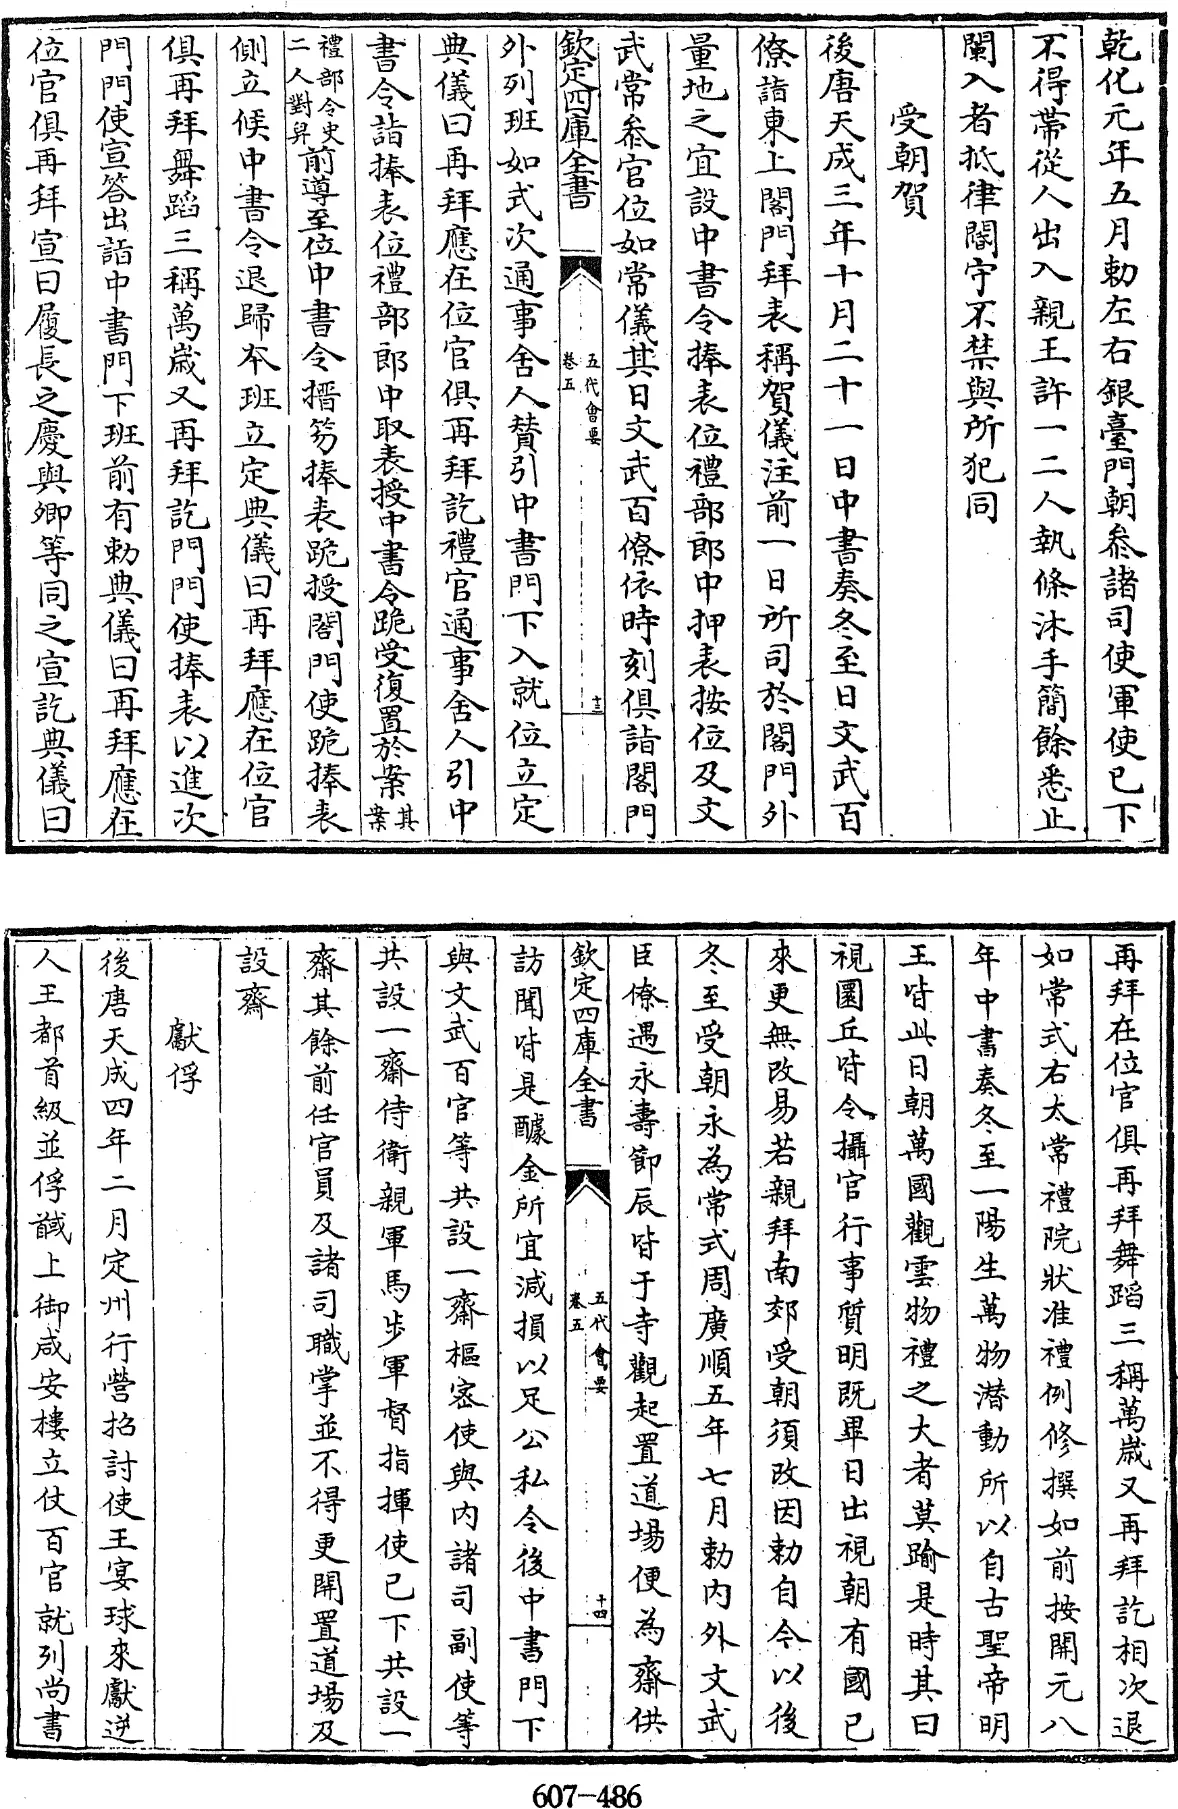 乾化元年五月勅左右銀臺門朝叅諸司使軍使已下
不得帶從人出入親王許一二人執條沐手簡餘悉止
闌入者抵律閽守不禁與所犯同
受朝賀
後唐天成三年十月二十一日中書奏冬至日文武百
僚詣東上閤門拜表稱賀儀注前一日所司於閤門外
量地之宜設中書令捧表位禮部郎中押表按位及文
武常叅官位如常儀其日文武百僚依時刻俱詣閤門
欽定四庫全書
五代會要
卷五
十三
外列班如式次通事舍人賛引中書門下入就位立定
典儀曰再拜應在位官俱再拜訖禮官通事舍人引中
書令詣捧表位禮部郎中取表授中書令跪受復置於案其案
禮部令史二人對舁前導至位中書令搢笏捧表跪授閤門使跪捧表
側立候中書令退歸本班立定典儀曰再拜應在位官
俱再拜舞蹈三稱萬歲又再拜訖門門使捧表以進次
門門使宣答出詣中書門下班前有勅典儀曰再拜應在
位官俱再拜宣曰履長之慶與卿等同之宣訖典儀曰
再拜在位官俱再拜舞蹈三稱萬歲又再拜訖相次退
如常式右太常禮院狀准禮例修撰如前按開元八
年中書奏冬至一陽生萬物潛動所以自古聖帝明
王皆此日朝萬國觀雲物禮之大者莫踰是時其日
視圜丘皆令攝官行事質明既畢日出視朝有國已
來更無改易若親拜南郊受朝須改因勅自今以後
冬至受朝永為常式周廣順五年七月勅內外文武
臣僚遇永壽節辰皆于寺觀起置道場便為齋供
欽定四庫全書
五代會要
卷五
十四
訪聞皆是醵金所宜減損以足公私令後中書門下
與文武百官等共設一齋樞密使與內諸司副使等
共設一齋侍衛親軍馬步軍督指揮使已下共設一
齋其餘前任官員及諸司職掌並不得更開置道場及
設齋
獻俘
後唐天成四年二月定州行營招討使王宴球來獻逆
人王都首級並俘馘上御咸安樓立仗百官就列尚書
607-486